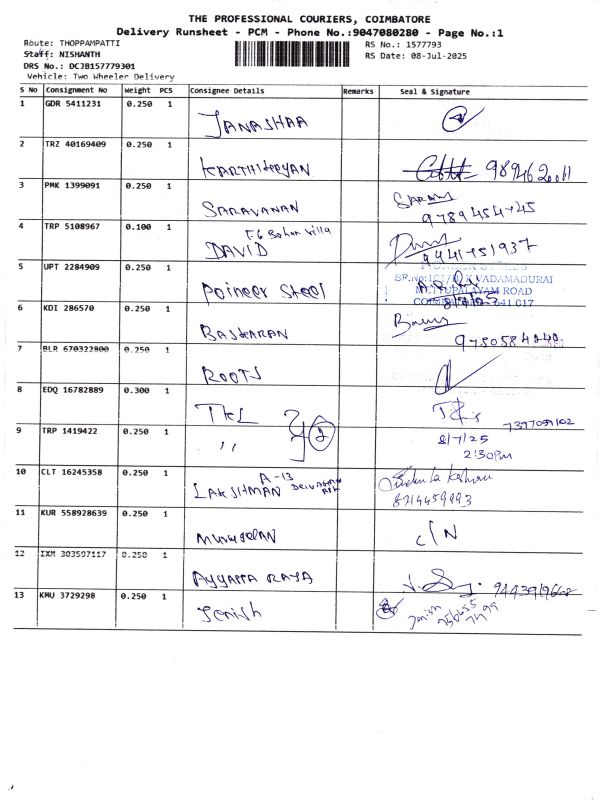 THE PROFESSIONAL COURIERS, COIMBATORE
Delivery Runsheet - PCM - Phone No.:9047080280 - Page No.:1
Route: THOPPAMPATTI
RS No.: 1577793
Staff: NISHANTH
RS Date: 08-Jul-2025
DRS No.: DCJB157779301
Vehicle: Two Wheeler Delivery
S No Consignment No Weight PCS Consignee Details Remarks Seal & Signature
1 GDR 5411231 0.250 1
JANASHAA
2 TRZ 40169409 0.250 1
KARTHIKEYAN
3 PMK 1399091 0.250 1
SARAVANAN
4 TRP 5108967 0.100 1
DAVID
5 UPT 2284909 0.250 1
Poineer Steel
METTUPALAYAM ROAD
8/7/25
6 KDI 286570 0.250 1
BASKARAN
7 BLR 670322800 0.250 1
ROOTS
8 EDQ 16782889 0.300 1
TKL 2
7397097102
9 TRP 1419422 0.250 1
,, 8/7/25
2:30Pm
10 CLT 16245358 0.250 1
A-13
LAKSHMAN
8714459993
11 KUR 558928639 0.250 1
MURUGELAN
C/N
12 IXM 303597117 0.250 1
AYYAPPA RAJA
13 KMU 3729298 0.250 1
Jenish
Jenish